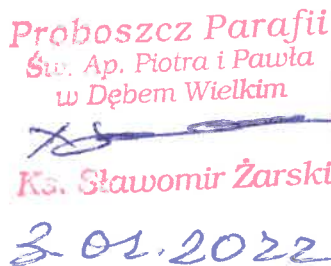 Proboszcz Parafii
Św. Ap. Piotra i Pawła
w Dębem Wielkim
Ks. Sławomir Żarski
3.01.2022